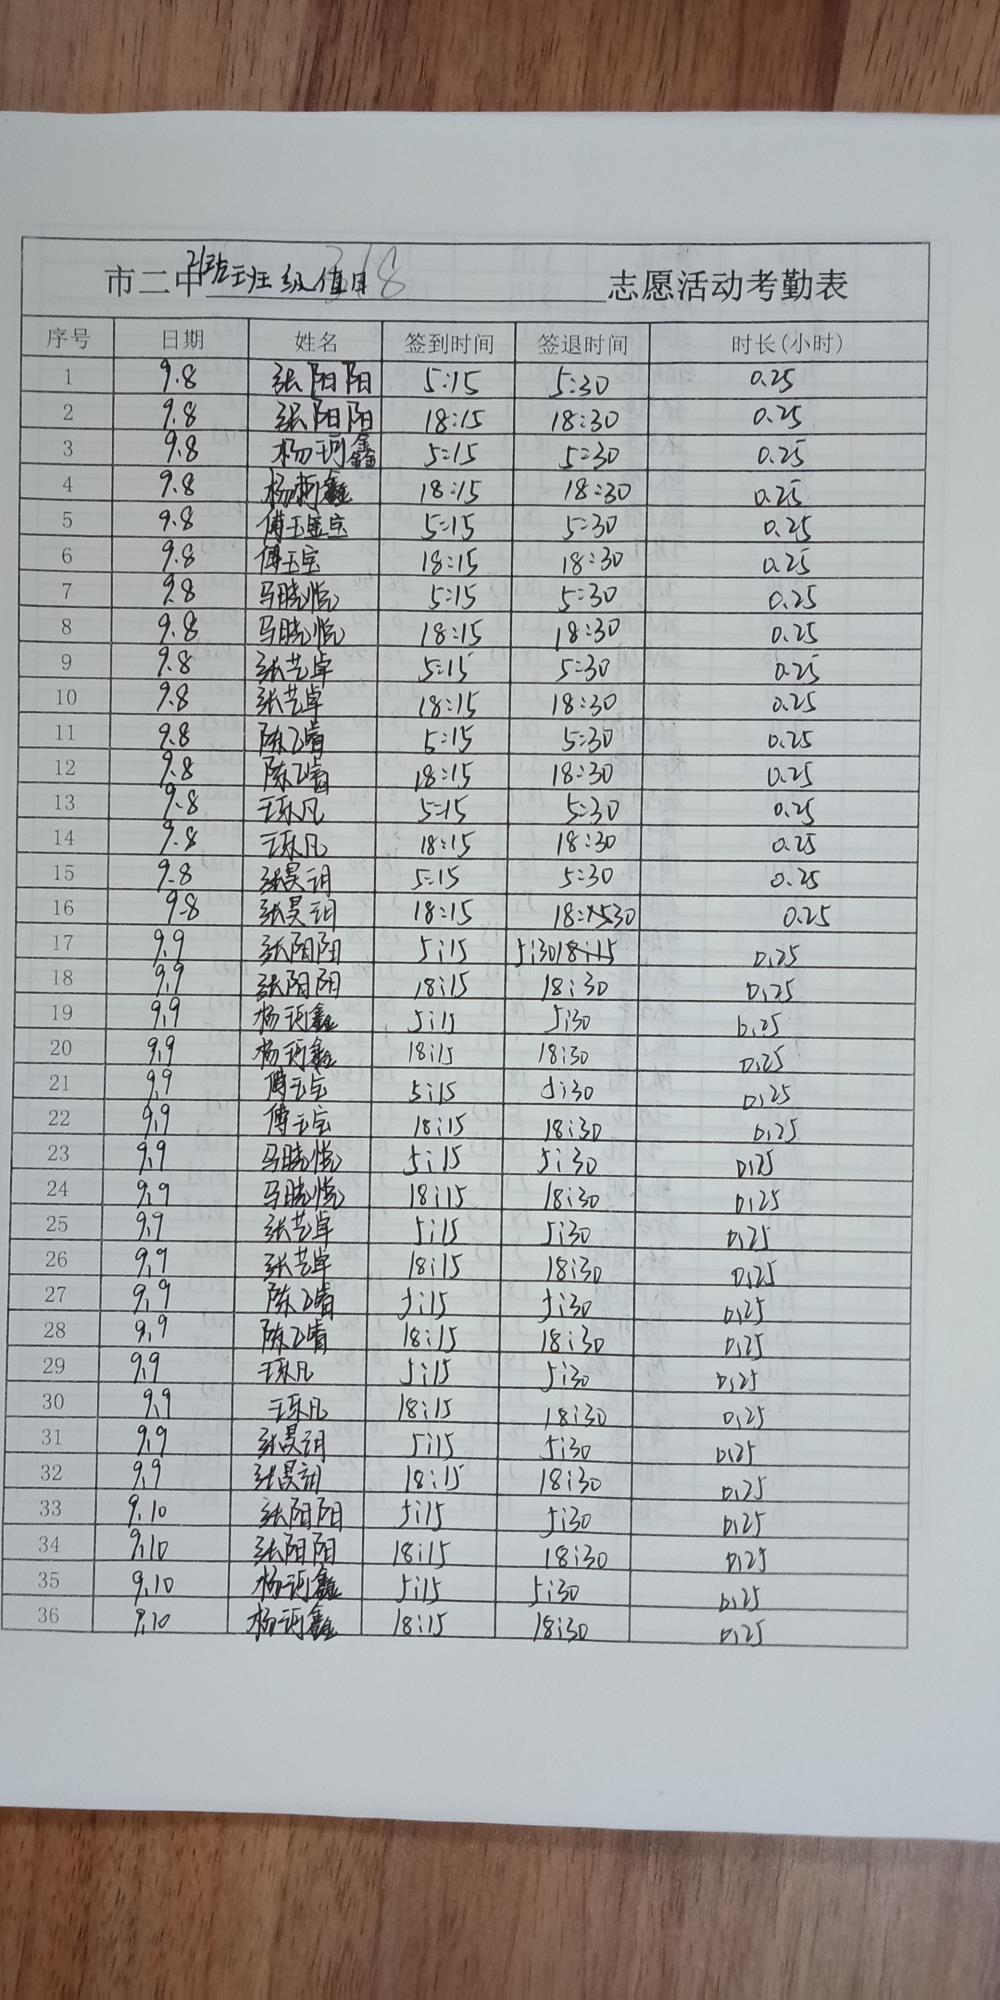 市二中21班班级值日 318 志愿活动考勤表
序号 日期 姓名 签到时间 签退时间 时长(小时)
1 9.8 张阳阳 5:15 5:30 0.25
2 9.8 张阳阳 18:15 18:30 0.25
3 9.8 杨珂鑫 5:15 5:30 0.25
4 9.8 杨珂鑫 18:15 18:30 0.25
5 9.8 傅玉宝 5:15 5:30 0.25
6 9.8 傅玉宝 18:15 18:30 0.25
7 9.8 马晓悦 5:15 5:30 0.25
8 9.8 马晓悦 18:15 18:30 0.25
9 9.8 张艺卓 5:15 5:30 0.25
10 9.8 张艺卓 18:15 18:30 0.25
11 9.8 陈乙睿 5:15 5:30 0.25
12 9.8 陈乙睿 18:15 18:30 0.25
13 9.8 王乐凡 5:15 5:30 0.25
14 9.8 王乐凡 18:15 18:30 0.25
15 9.8 张昊玥 5:15 5:30 0.25
16 9.8 张昊玥 18:15 18:30 0.25
17 9.9 张阳阳 5:15 5:30 0.25
18 9.9 张阳阳 18:15 18:30 0.25
19 9.9 杨珂鑫 5:15 5:30 0.25
20 9.9 杨珂鑫 18:15 18:30 0.25
21 9.9 傅玉宝 5:15 5:30 0.25
22 9.9 傅玉宝 18:15 18:30 0.25
23 9.9 马晓悦 5:15 5:30 0.25
24 9.9 马晓悦 18:15 18:30 0.25
25 9.9 张艺卓 5:15 5:30 0.25
26 9.9 张艺卓 18:15 18:30 0.25
27 9.9 陈乙睿 5:15 5:30 0.25
28 9.9 陈乙睿 18:15 18:30 0.25
29 9.9 王乐凡 5:15 5:30 0.25
30 9.9 王乐凡 18:15 18:30 0.25
31 9.9 张昊玥 5:15 5:30 0.25
32 9.9 张昊玥 18:15 18:30 0.25
33 9.10 张阳阳 5:15 5:30 0.25
34 9.10 张阳阳 18:15 18:30 0.25
35 9.10 杨珂鑫 5:15 5:30 0.25
36 9.10 杨珂鑫 18:15 18:30 0.25